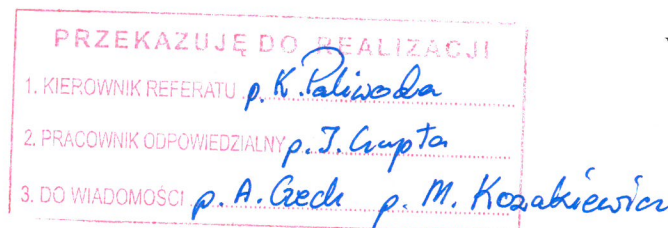 PRZEKAZUJĘ DO REALIZACJI
1. KIEROWNIK REFERATU p. K. Paliwoda
2. PRACOWNIK ODPOWIEDZIALNY p. J. Czupta
3. DO WIADOMOŚCI p. A. Czech p. M. Kozakiewicz